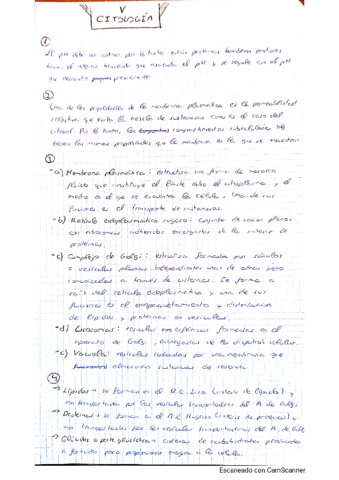 V
CITOLOGÍA
1
El pH debe ser ácido, por lo tanto estas proteínas bombean protones
hacia el interior haciendo que aumente el pH y se regule con el pH
que
2
Una de las propiedades de la membrana plasmática es la permeabilidad
selectiva que evita la mezcla de sustancias como es el caso del
citosol. Por lo tanto, los compartimentos subcelulares
tienen las mismas propiedades que la membrana en la que se encuentran.
3
-a) Membrana plasmática: estructura en forma de mosaico
fluido que constituye el límite entre el citoplasma y el
medio en el que se encuentra la célula. Una de sus
funciones es el transporte de sustancias.
-b) Retículo endoplasmático rugoso: Conjunto de sacos planos
con ribosomas adheridos encargados de la síntesis de
proteínas.
-c) Complejo de Golgi: estructura formada por sáculos
o vesículas planas independientes unas de otras pero
comunicadas a través de cisternas. Se forma a
raíz del retículo endoplasmático y una de sus
funciones es el empaquetamiento y distribución
de lípidos y proteínas en vesículas.
-d) Lisosomas: vesículas formadas en el
aparato de Golgi, encargadas de la digestión celular.
-e) Vacuola: vesículas rodeadas por una membrana que
almacenan sustancias de reserva.
4
→ Lípidos → se forman en el R.E. Liso (síntesis de lípidos) y
son transportados por las vesículas transportadoras del A. de Golgi
→ Proteínas → se forman en el R.E. Rugoso (síntesis de proteínas) y
son transportadas por las vesículas transportadoras del A. de Golgi
→ Glúcidos o parte glucídica: cadenas de carbohidratos
para proporcionar energía a la célula.
Escaneado con CamScanner